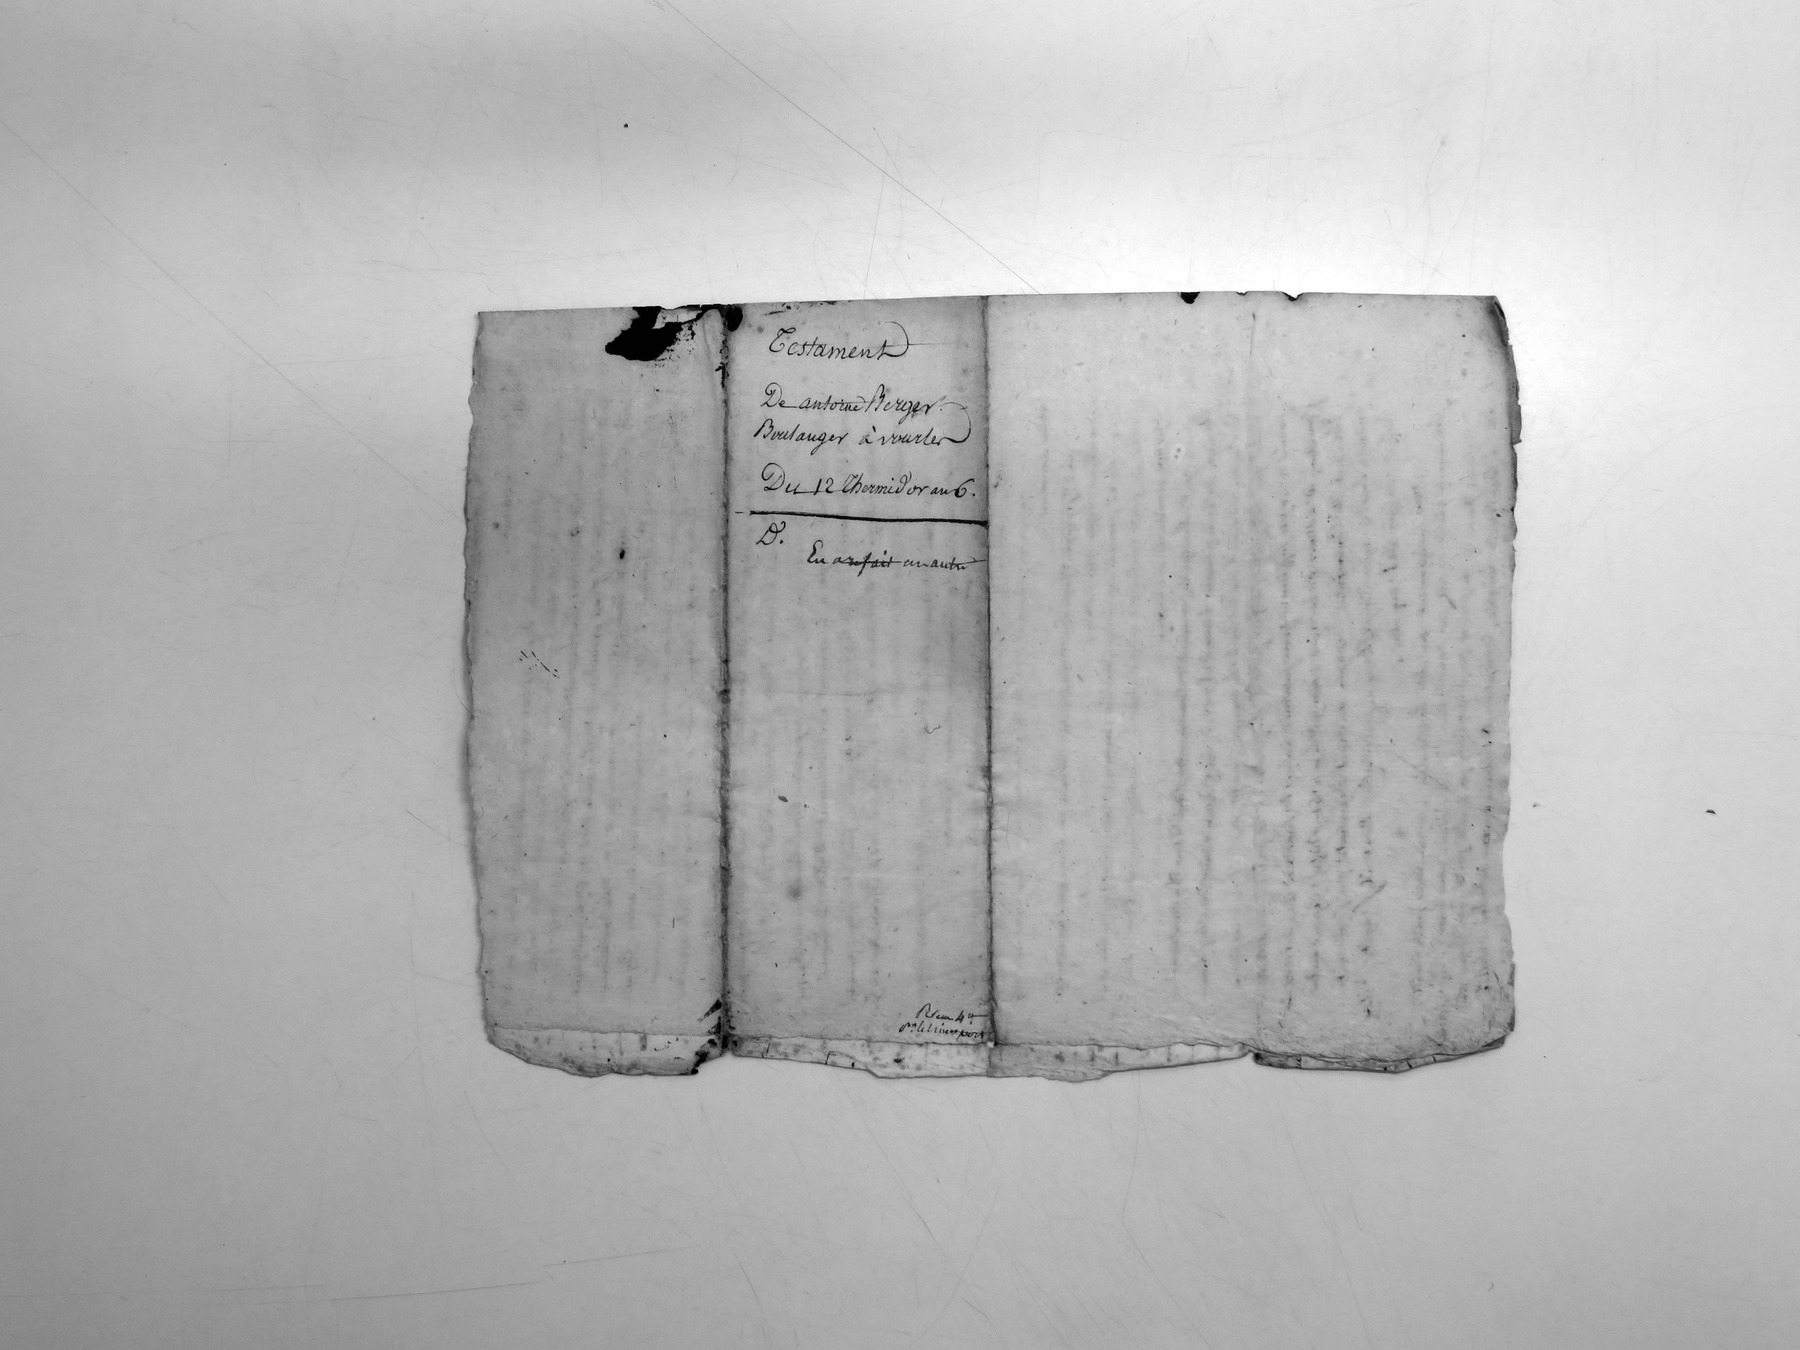 Testament
De antoine Berger
Boulanger à vourles
Du 12 Thermidor an 6.
D.
En a refait un autre